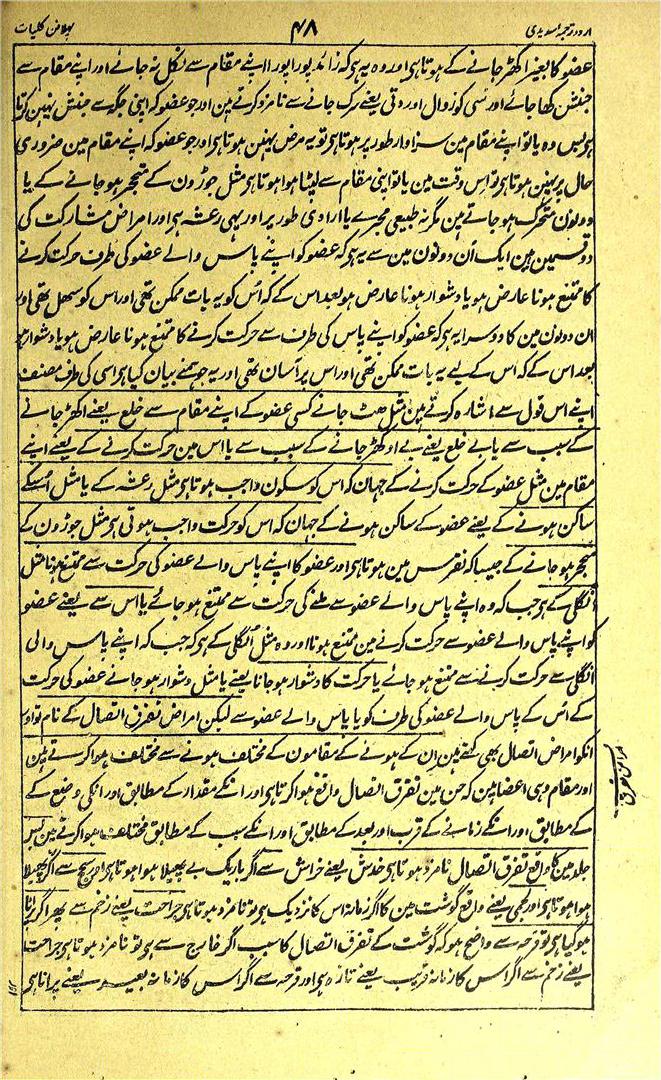 اردو ترجمہ سدیدی ۴۸ پہلا فن کلیات
عضو کا بغیر اکھڑ جانے کے ہوتا ہی اور وہ یہ ہی کہ زائد پورا پورا اپنے مقام سے نکل نہ جائے اور اپنے مقام سے
جنبش کھا جائے اور اسی کو زوال اور وثی یعنے سرک جانے سے نامزد کرتے ہین اور جو عضو کہ اپنی جگہ سے جنبش نہین کرتا
ہی پس وہ یا تو اپنے مقام مین سزاوار طور پر ہوتا ہی تو یہ مرض نہین ہوتا ہی اور جو عضو کہ اپنے مقام مین ضروری
حال پر نہین ہوتا ہی تو اس وقت مین یا تو اپنی مقام سے لپٹا ہوا ہوتا ہی مثل جوڑون کے متحجر ہو جانے کے یا
دونون متحرک ہو جاتے ہین مگر نہ طبیعی مجرے یا ارادی طور پر اور یہی رعشہ ہی اور امراض مشارکت کی
دو قسمین ہین ایک اُن دونون مین سے یہ ہی کہ عضو کو اپنے پاس والے عضو کی طرف حرکت کرنے
کا ممتنع ہونا عارض ہو یا دشوار ہونا عارض ہو بعد اس کے کہ اُس کو یہ بات ممکن تھی اور اس کو سھل تھی اور
ان دونون مین کا دوسرا یہ ہی کہ عضو کو اپنے پاس کی طرف سے حرکت کرنے کا ممتنع ہونا عارض ہو یا دشوار ہو
بعد اس کے کہ اس کے لیے یہ بات ممکن تھی اور اس پر آسان تھی اور یہ جو ہمنے بیان کیا ہی اسی کی طرف مصنف
اپنے اس قول سے اشارہ کرتے ہین مثل ھٹ جانے کسی عضو کے اپنے مقام سے خلع یعنے اکھڑ جانے
کے سبب سے یا بے خلع یعنے بے اوکھڑ جانے کے سبب سے یا اس مین حرکت کرنے کے یعنے اپنے
مقام مین مثل عضو کے حرکت کرنے کے جہان کہ اس کو سکون واجب ہوتا ہی مثل رعشہ کے یا مثل اُسکے
ساکن ہونے کے یعنے عضو کے ساکن ہونے کے جہان کہ اس کو حرکت واجب ہوتی ہی مثل جوڑون کے
متحجر ہو جانے کے جیسا کہ نقرس مین ہوتا ہی اور عضو کا اپنے پاس والے عضو کی حرکت سے ممتنع ہونا مثل
انگلی کے ہی جب کہ وہ اپنے پاس والے عضو سے ملنے کی حرکت سے ممتنع ہو جائے یا اس سے یعنے عضو
کو اپنے پاس والے عضو سے حرکت کرنے مین ممتنع ہونا اور وہ مثل اُنگلی کے ہی کہ جب کہ اپنے پاس والی
انگلی سے حرکت کرنے سے ممتنع ہو جائے یا حرکت کا دشوار ہو جانا یعنے یا مثل دشوار ہو جانے عضو کی حرکت
کے اُس کے پاس والے عضو کی طرف کو یا پاس والے عضو سے لیکن امراض تفرق اتصال کے نام تو اور
انکو امراض اتصال بھی کہتے ہین اِن کے ہونے کے مقامون کے مختلف ہونے سے مختلف ہوا کرتے ہین
اور مقام وہی اعضا ہین کہ جن مین تفرق اتصال واقع ہوا کرتا ہی اور انکے مقدار کے مطابق اور انکی وضع کے
کے مطابق اور انکے زمانے کے قرب اور بعد کے مطابق اور انکے سبب کے مطابق مختلف ہوا کرتے ہین پس
جلد مین کا واقع تفرق اتصال نامزد ہوتا ہی خدش یعنے خراش سے اگر باریک بے پھیلا ہوا ہوتا ہی اور سحج سے اگر پھیلا
ہوا ہوتا ہی اور لحمی یعنے واقع گوشت مین کا اگر زمانہ اس کا نزدیک ہی تو نامزد ہوتا ہی جراحت یعنے زخم سے پھر اگر پرانا
ہو گیا ہی تو قرحہ سے واضح ہو کہ گوشت کے تفرق اتصال کا سبب اگر خارج سے ہی تو نامزد ہوتا ہی جراحت
یعنے زخم سے اگر اس کا زمانہ قریب یعنے تازہ ہی اور قرحہ سے اگر اس کا زمانہ بعید یعنے پرانا ہی